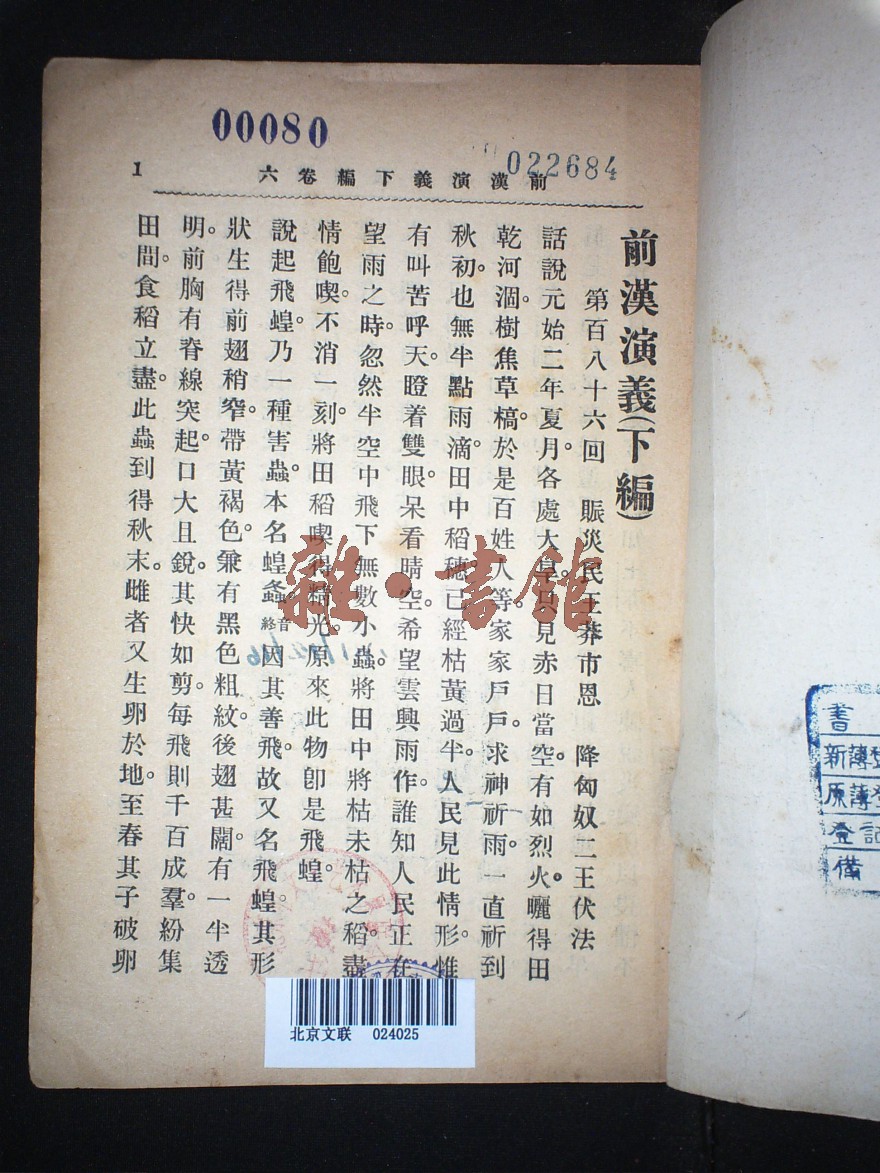 00080
022684
前漢演義下編卷六
1
前漢演義(下編)
第百八十六回 賑災民王莽市恩 降匈奴二王伏法
話說元始二年夏月。各處大旱。只見赤日當空。有如烈火。曬得田
乾河涸。樹焦草槁。於是百姓人等。家家戶戶。求神祈雨。一直祈到
秋初。也無半點雨滴。田中稻穗。已經枯黃過半。人民見此情形。惟
有叫苦呼天。瞪着雙眼。呆看晴空。希望雲興雨作。誰知人民正在
望雨之時。忽然半空中飛下無數小蟲。將田中將枯未枯之稻。盡
情飽喫。不消一刻。將田稻喫得精光。原來此物卽是飛蝗。
說起飛蝗。乃一種害蟲。本名蝗螽音終因其善飛。故又名飛蝗。其形
狀生得前翅稍窄。帶黃褐色。兼有黑色粗紋。後翅甚闊。有一半透
明。前胸有脊線突起。口大且銳。其快如剪。每飛則千百成羣。紛集
田間。食稻立盡。此蟲到得秋末。雌者又生卵於地。至春其子破卵
雜·書館
北京文联 024025
書
新謄登
原謄登
登記
備